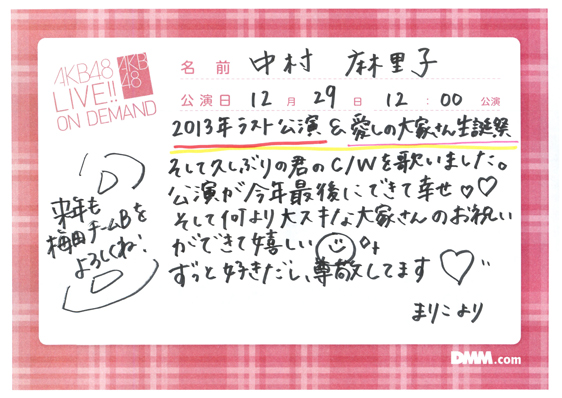 AKB48
LIVE!!
ON DEMAND
AKB
48
名前 中村 麻里子
公演日 12月29日 12:00 公演
2013年ラスト公演&愛しの大家さん生誕祭
そして久しぶりの君のC/Wを歌いました。
公演が今年最後にできて幸せ♡♡
そして何より大スキな大家さんのお祝い
ができて嬉しい
ずっと好きだし、尊敬してます♡
まりこより
来年も
梅田チームBを
よろしくね!
DMM.com